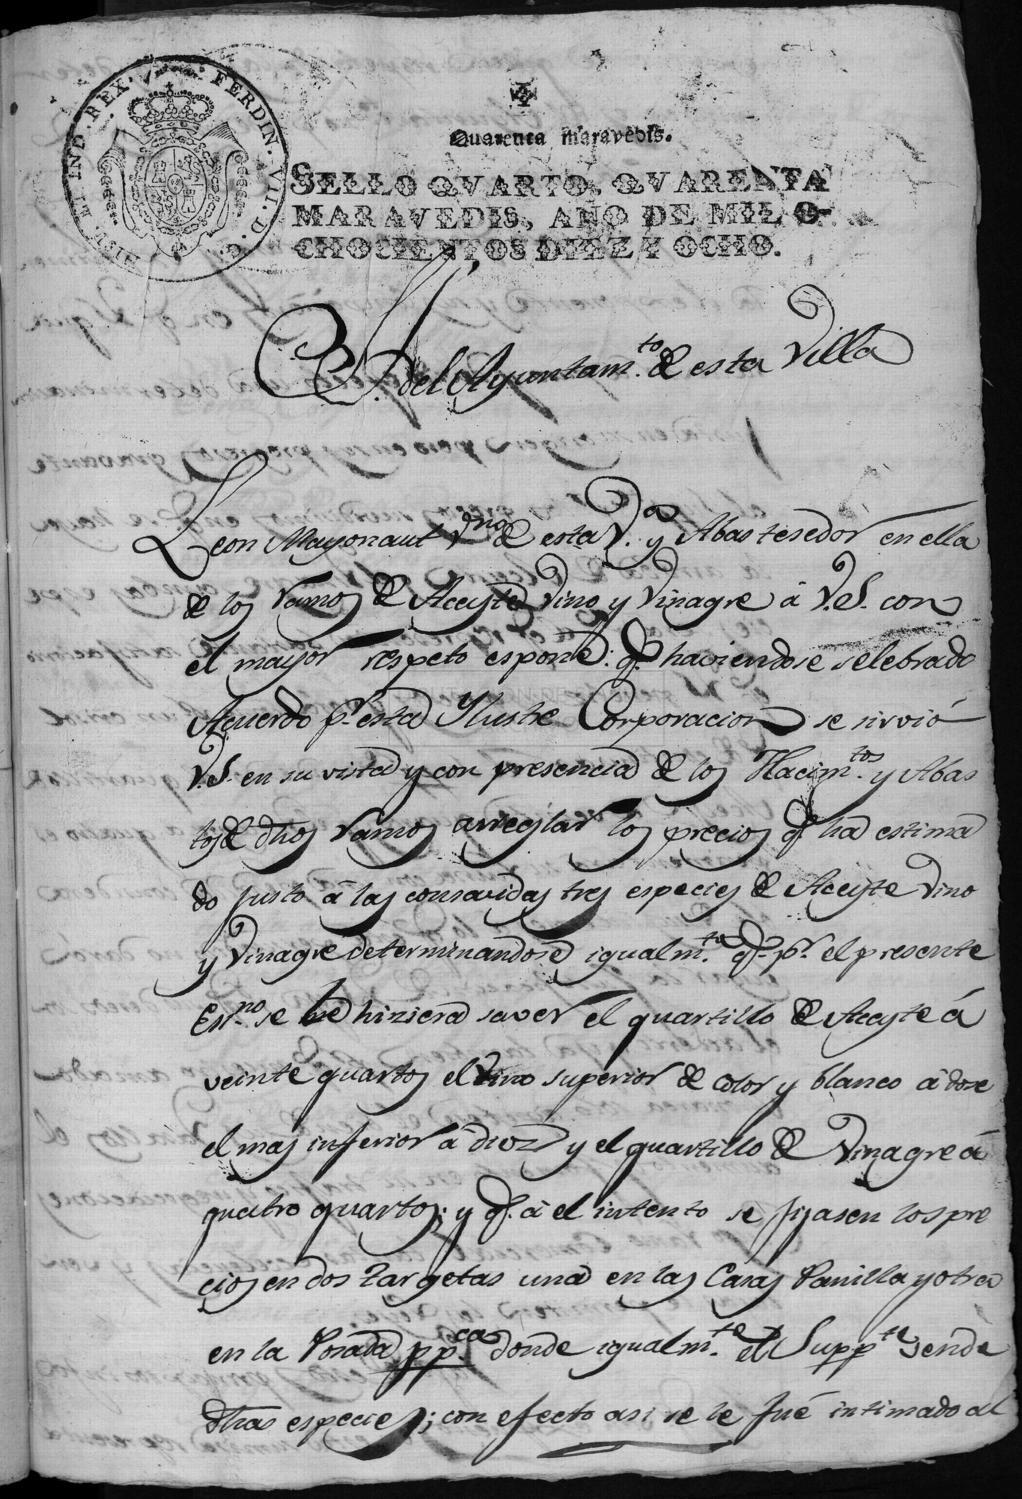 HISP. ET IND. REX. FERDIN. VII. D. G.
Quarenta maravedis.
SELLO QVARTO, QVARENTA
MARAVEDIS, AÑO DE MIL O-
CHOCIENTOS DIEZ Y OCHO.
del Ayuntam.to de esta Villa
Leon Mayonaut Vno de esta V.a y Abastesedor en ella
de los ramos de Aceyte Vino y Vinagre á V.S. con
el mayor respeto espone: q.e haviendose selebrado
Acuerdo p.r esta Ylustre Corporacion se sirvió
V.S. en su vista y con presencia de los Hacim.tos y Abas
tos de dhos ramos arreglar los precios q.e ha estima
do justo á las consavidas tres especies de Aceyte Vino
y Vinagre determinandose igualm.te q.e p.r el presente
Es.no se le hiziera saver el quartillo de Aceyte á
veinte quartos el Vino superior de color y blanco á dose
el mas inferior á diez y el quartillo de Vinagre á
quatro quartos; y q.e á el intento se fijasen los pre
cios en dos Targetas una en las Casas Panilla y otra
en la Posada pp.ca donde igualm.te el Supp.te vende
dhas especies; con efecto asi se le fué intimado al